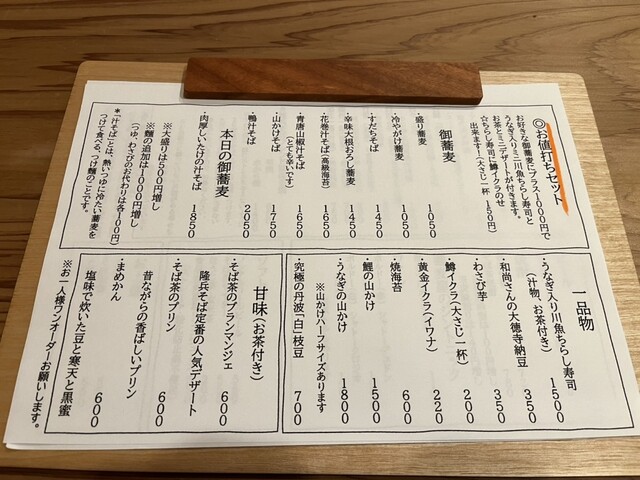 ◎お値打ちセット
お好きな御蕎麦にプラス1000円で
うなぎ入りミニ川魚ちらし寿司と
お茶とミニデザートが付きます。
☆ちらし寿司に鱒イクラのせ
出来ます！(大さじ一杯 150円)
御蕎麦
・盛り蕎麦 1050
・冷やがけ蕎麦 1050
・すだちそば 1450
・辛味大根おろし蕎麦 1450
・花巻汁そば(高級海苔) 1650
・青唐山椒汁そば 1650
(とても辛いです)
・山かけそば 1750
・鴨汁そば 2050
本日の御蕎麦
・肉厚しいたけの汁そば 1850
※大盛りは500円増し
※麺の追加は1000円増し
(つゆ、わさびのお代わりは各100円)
*「汁そば」とは、熱いつゆに冷たい蕎麦を
つけて食べる、つけ麺のことです。
一品物
・うなぎ入り川魚ちらし寿司 1500
(汁物、お茶付き)
・和尚さんの大徳寺納豆 350
・わさび芋 350
・鱒イクラ(大さじ一杯) 200
・黄金イクラ(イワナ) 220
・焼海苔 600
・鯉の山かけ 1500
・うなぎの山かけ 1800
※山かけハーフサイズあります
・究極の丹波「白」枝豆 700
甘味(お茶付き)
・そば茶のブランマンジェ 600
隆兵そば定番の人気デザート
・そば茶のプリン 600
昔ながらの香ばしいプリン
・まめかん 600
塩味で炊いた豆と寒天と黒蜜
※お一人様ワンオーダーお願いします。